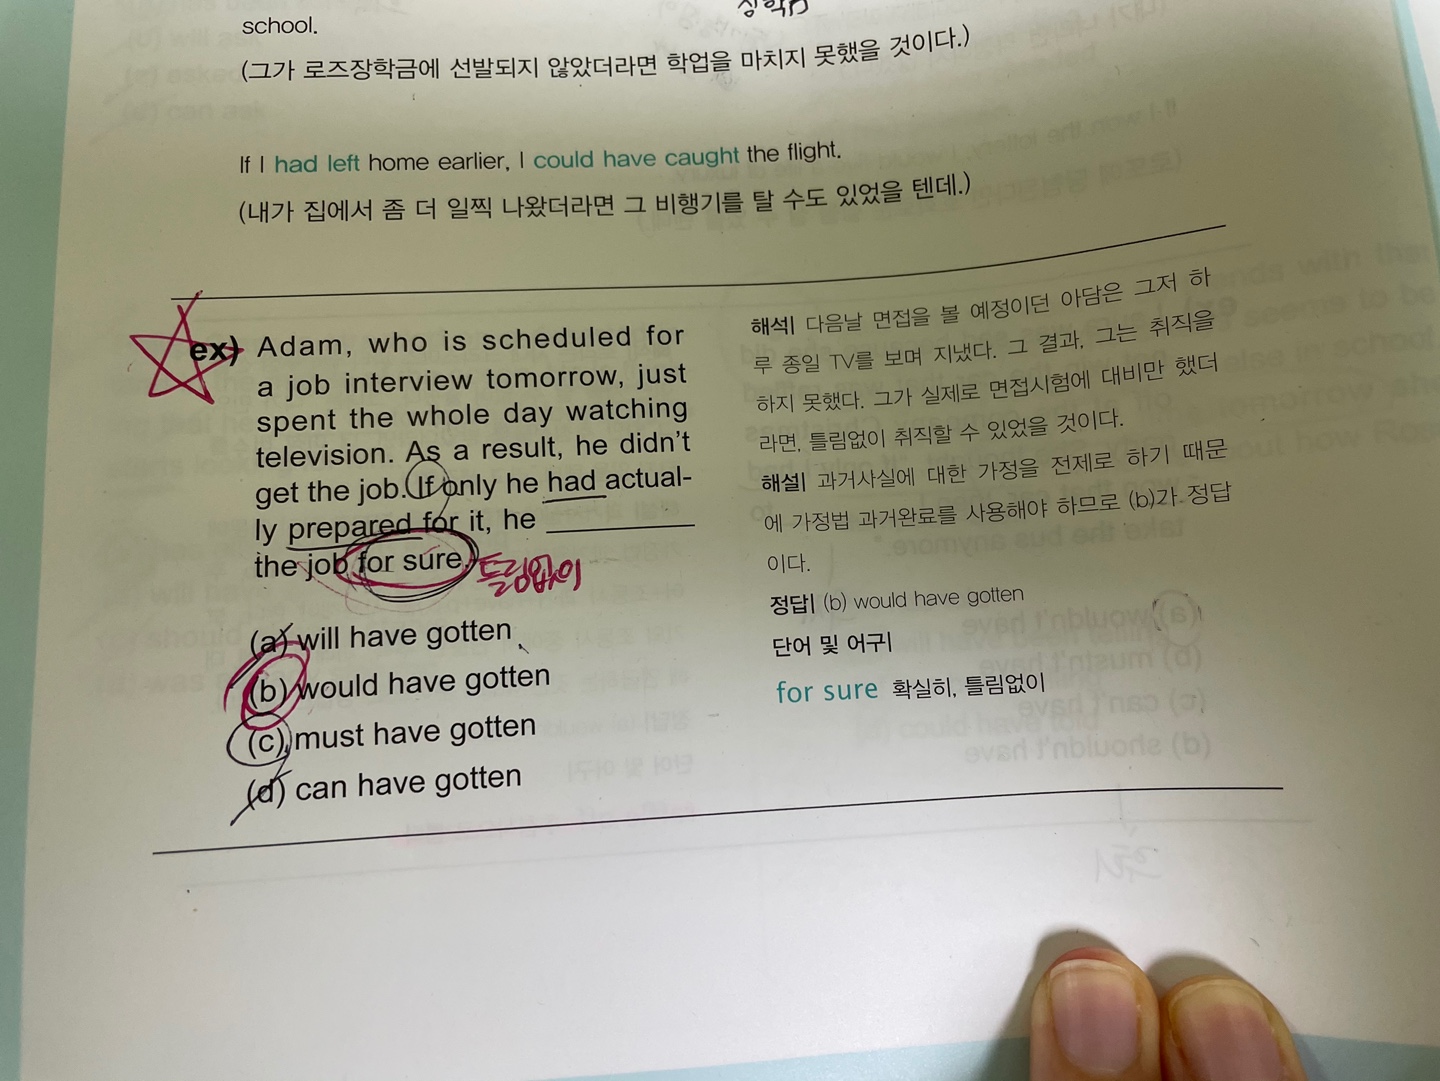 school.
(그가 로즈장학금에 선발되지 않았더라면 학업을 마치지 못했을 것이다.)
If I had left home earlier, I could have caught the flight.
(내가 집에서 좀 더 일찍 나왔더라면 그 비행기를 탈 수도 있었을 텐데.)
ex) Adam, who is scheduled for
a job interview tomorrow, just
spent the whole day watching
television. As a result, he didn't
get the job. If only he had actual-
ly prepared for it, he ________
the job for sure. 틀림없이
(a) will have gotten
(b) would have gotten
(c) must have gotten
(d) can have gotten
해석| 다음날 면접을 볼 예정이던 아담은 그저 하
루 종일 TV를 보며 지냈다. 그 결과, 그는 취직을
하지 못했다. 그가 실제로 면접시험에 대비만 했더
라면, 틀림없이 취직할 수 있었을 것이다.
해설| 과거사실에 대한 가정을 전제로 하기 때문
에 가정법 과거완료를 사용해야 하므로 (b)가 정답
이다.
정답| (b) would have gotten
단어 및 어구|
for sure 확실히, 틀림없이